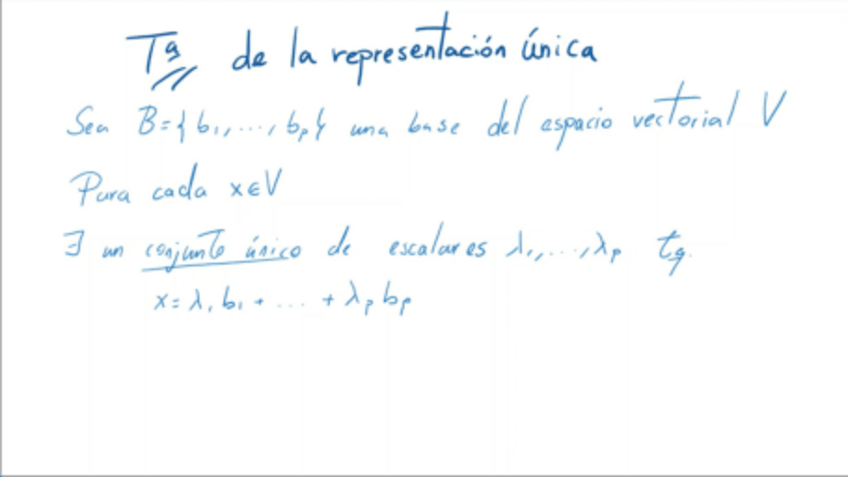 Tª de la representación única
Sea B={b₁,...,bₚ} una base del espacio vectorial V
Para cada x∈V
∃ un conjunto único de escalares λ₁,...,λₚ tq.
x=λ₁b₁+...+λₚbₚ